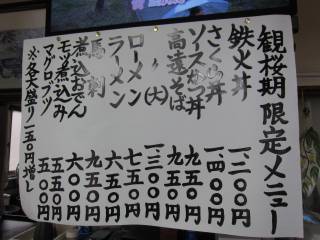 観桜期限定メニュー
鉄火丼 一、二〇〇円
さくら丼 一、四〇〇円
ソースかつ丼 九五〇円
高遠そば 九五〇円
〃(大) 一、三〇〇円
ローメン 七五〇円
ラーメン 六五〇円
馬刺 九五〇円
煮込おでん 六〇〇円
モツ煮込み 五五〇円
マグロブツ 五〇〇円
※各大盛り一五〇円増し